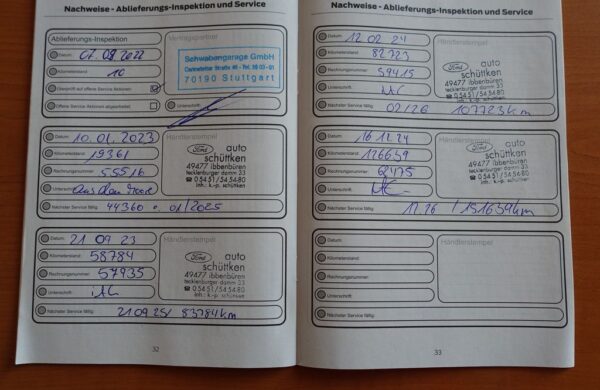 Nachweise - Ablieferungs-Inspektion und Service
Ablieferungs-Inspektion
Vertragspartner
Datum: 07.09.2022
Kilometerstand: 10
Überprüft auf offene Service Aktionen:
Offene Service Aktionen abgearbeitet:
Unterschrift:
Schwabengarage GmbH
70190 Stuttgart
Datum: 10.01.2023
Kilometerstand: 19361
Rechnungsnummer: 55516
Unterschrift:
Nächster Service fällig: 44360 • 01/2025
Händlerstempel
Ford auto
schüttken
49477 ibbenbüren
tecklenburger damm 33
☎ 05451/545480
inh.: k.-p. schüttken
Datum: 21 09 23
Kilometerstand: 58784
Rechnungsnummer: 57935
Unterschrift:
Nächster Service fällig: 21 09 25/ 83784 km
Händlerstempel
Ford auto
schüttken
49477 ibbenbüren
tecklenburger damm 33
☎ 05451/545480
inh.: k.-p. schüttken
32
Nachweise - Ablieferungs-Inspektion und Service
Datum: 12 02 24
Kilometerstand: 82723
Rechnungsnummer: 59415
Unterschrift:
Nächster Service fällig: 02/26 107723 km
Händlerstempel
Ford auto
schüttken
49477 ibbenbüren
tecklenburger damm 33
☎ 05451/545480
inh.: k.-p. schüttken
Datum: 16 12 24
Kilometerstand: 126659
Rechnungsnummer: 62475
Unterschrift:
Nächster Service fällig: 12.26 / 151659 km
Händlerstempel
Ford auto
schüttken
49477 ibbenbüren
tecklenburger damm 33
☎ 05451/545480
inh.: k.-p. schüttken
Datum:
Kilometerstand:
Rechnungsnummer:
Unterschrift:
Nächster Service fällig:
Händlerstempel
33